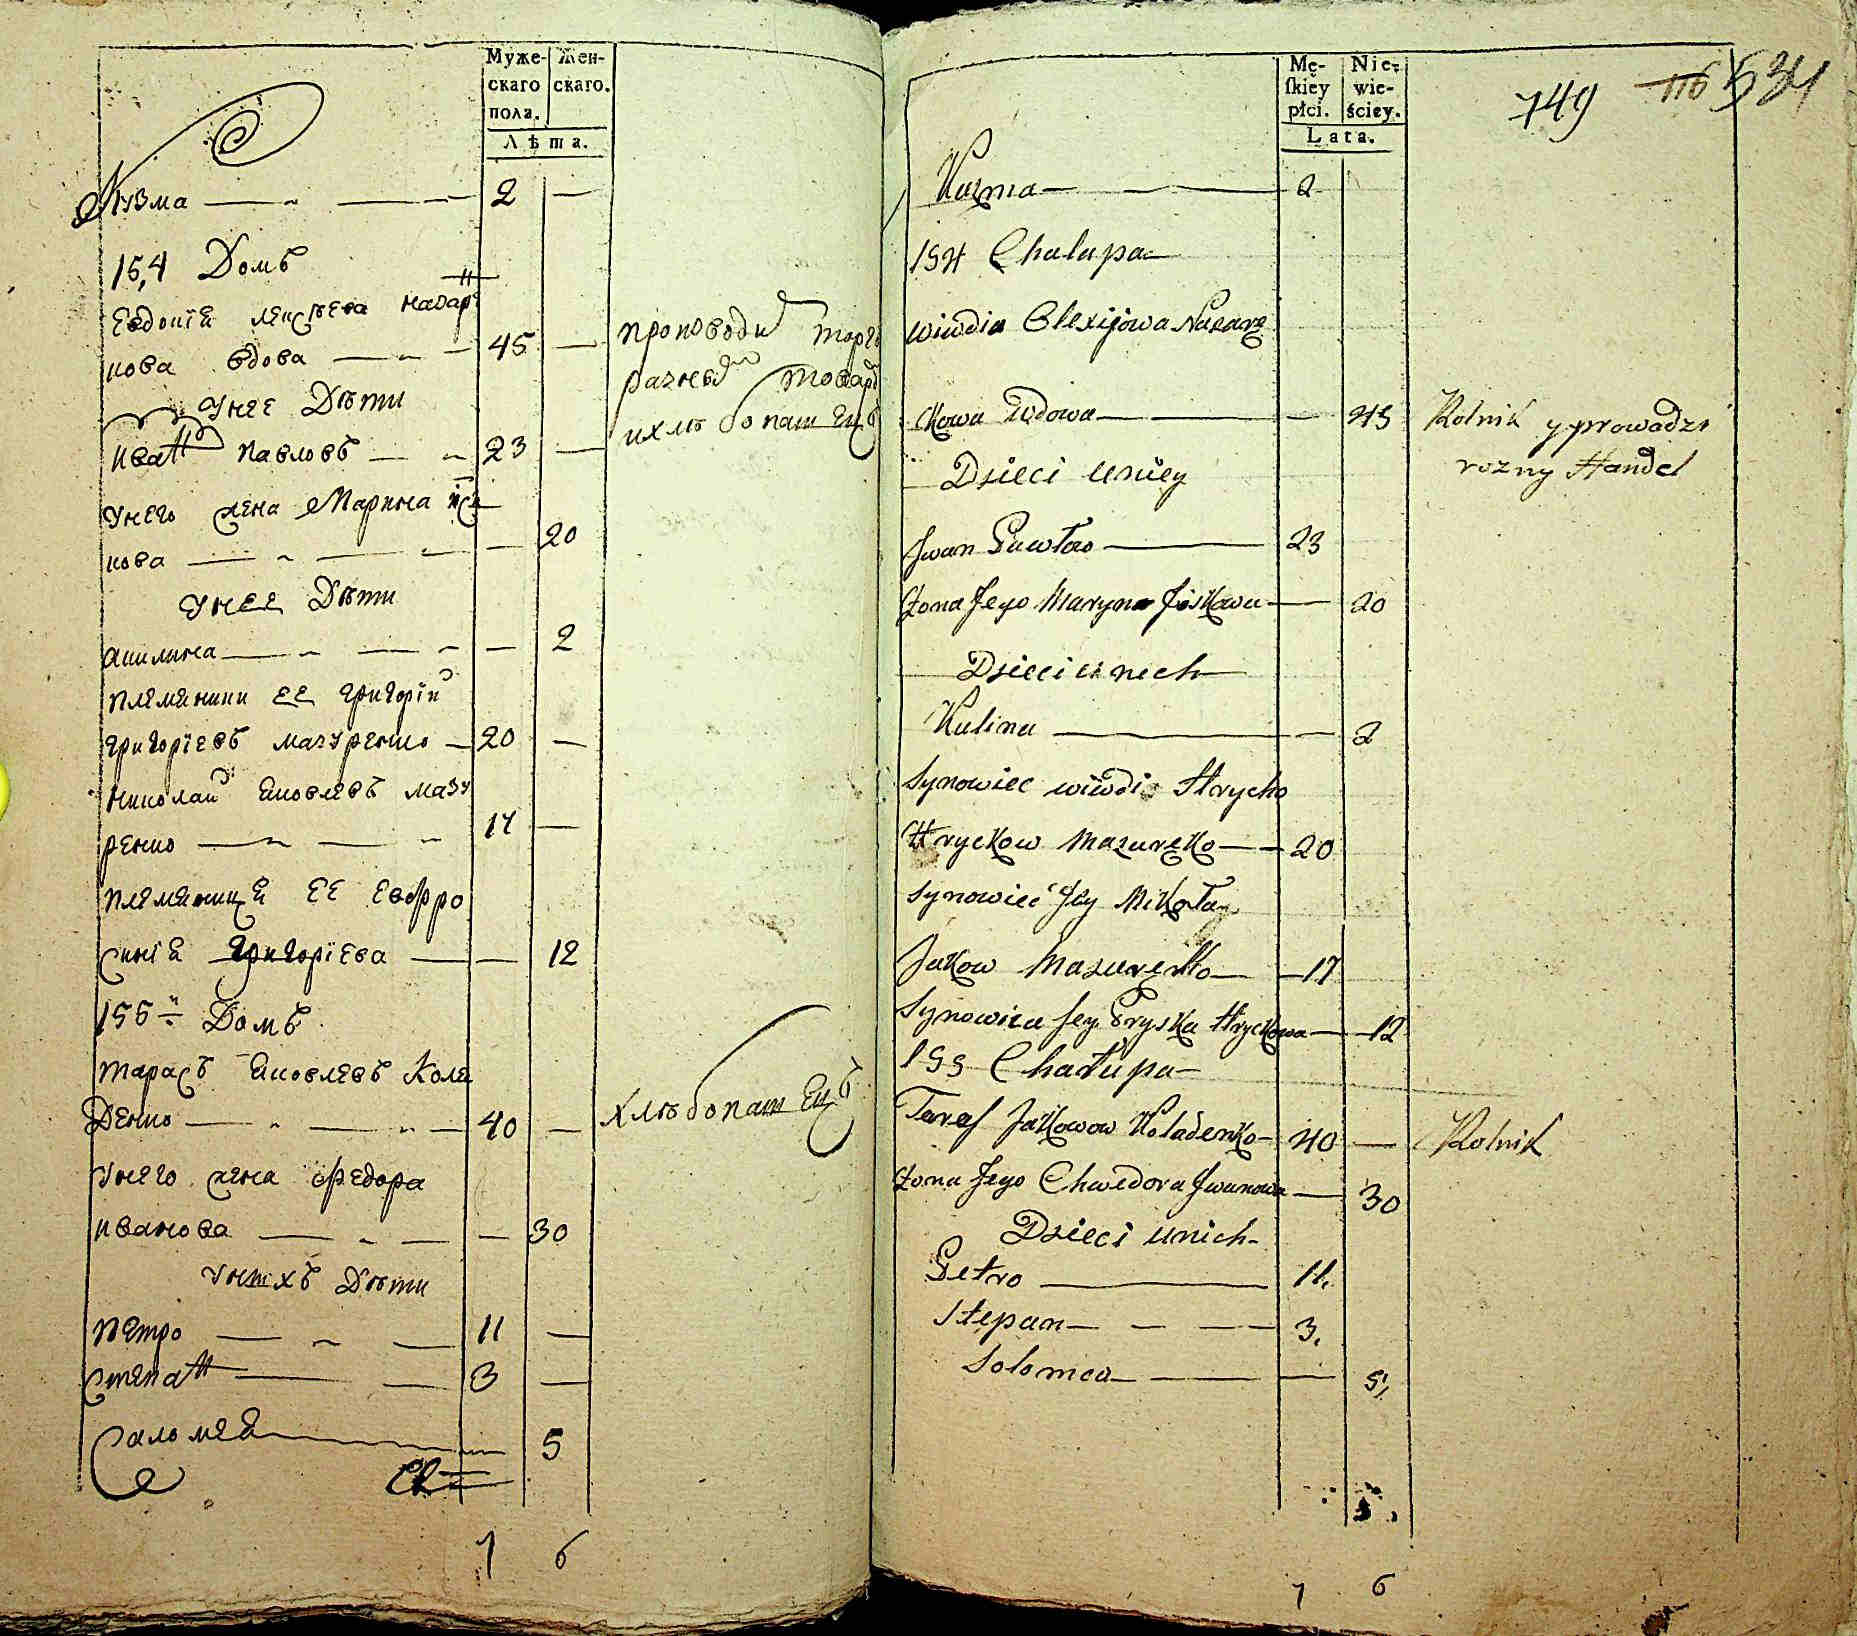 Муже- Жен-
скаго скаго.
пола.
Лѣта.
Кузма 2
154 Домъ
Евдокїя лексѣева назар
кова вдова 45
проповоди торгъ
разней товар
ихлѣбопашецъ
Унее Дѣти
иванъ павловъ 23
Унего жена Марина
кова 20
Унее Дѣти
акилина 2
племяники ее григорїй
григорїевъ мазуренко 20
николай яковлевъ мазу
ренко 17
племяница ее евфро
синїя григорїева 12
155й Домъ
тарасъ яковлевъ Коля
Денко 40 хлѣбопашецъ
Унего жена федора
иванова 30
Унихъ Дѣти
петро 11
степанъ 3
саломея 5
7 6
Mę- Nie-
ſkiey wie-
płci. ściey.
Lata.
749 116 534
Kuzma 2
154 Chalupa
Wiwdia Olexijowa Nazarę
Kowa Wdowa 45 Rolnik y prowadzi
rozny Handel
Dzieci Uniey
Jwan Pawłow 23
Zona Jego Maryna Jiskowa 20
Dzieci unich
Kulina 2
Synowiec wiwdi Hrycko
Hryckow Mazuręko 20
Synowiec Jey Mikołay
Jakow Mazuręko 17
Synowica Jey Pryska Hryckowa 12
155 Chałupa
Taraſ Jakowow Koladenko 40 Rolnik
Zona Jego Chwedora Jwanowa 30
Dzieci unich
Petro 11.
Stepan 3.
Solomea 5.
7 6